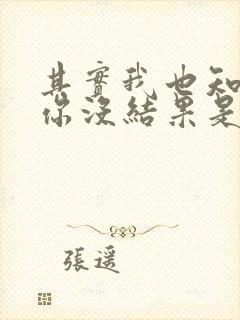 其實我也知
你沒結果是
張遥